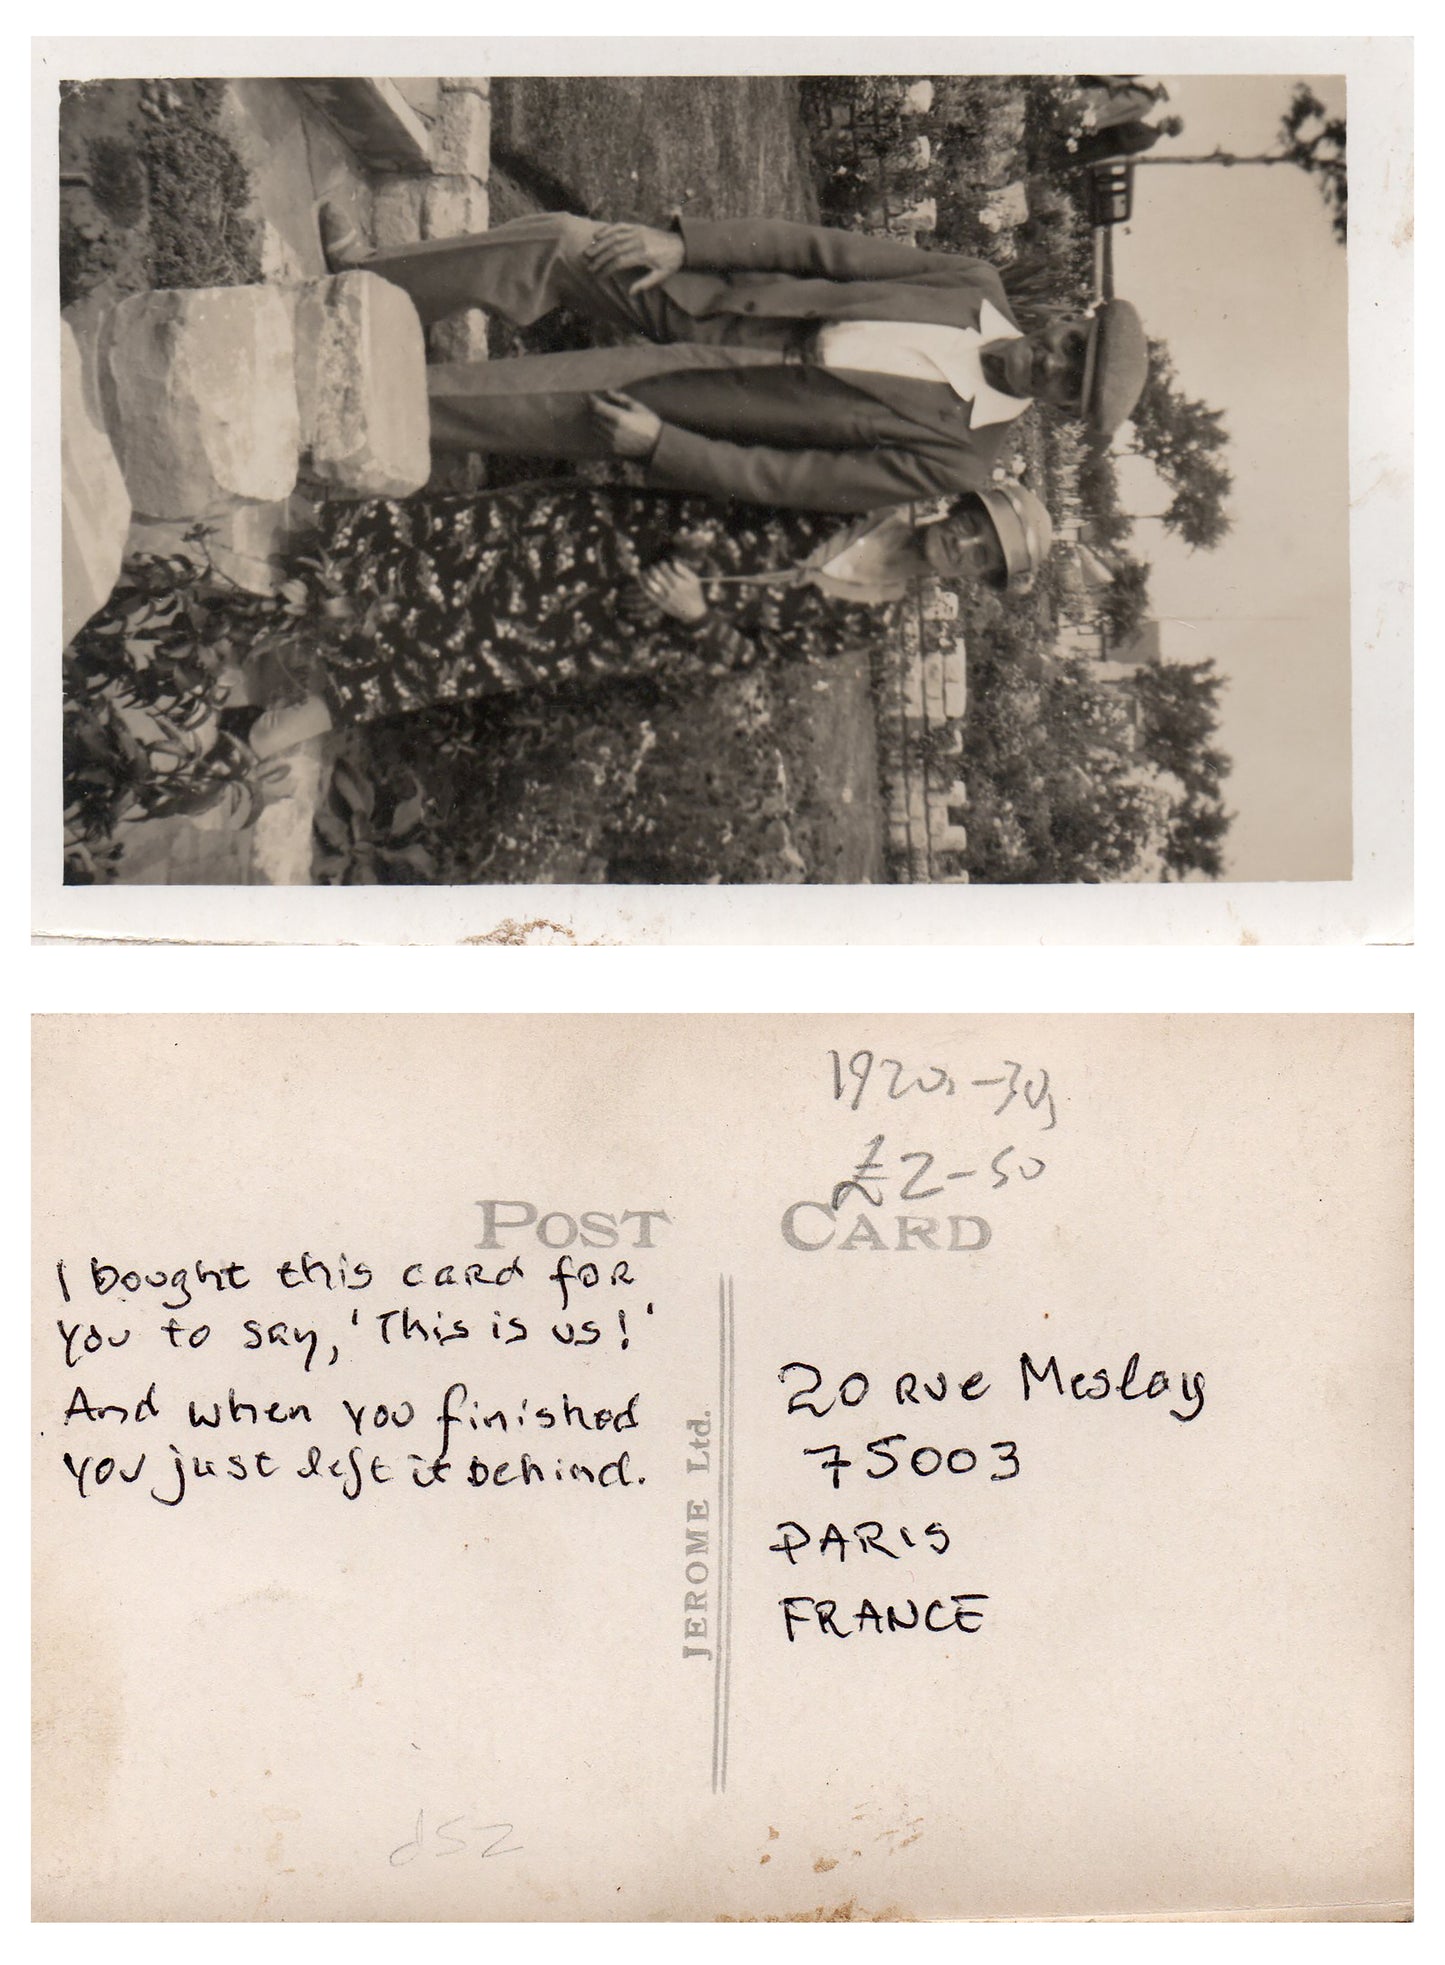 1920s-30s
£2-50
POST CARD
I bought this card for
you to say, 'This is us!'
And when you finished
you just left it behind.
JEROME Ltd.
20 Rue Meslay
75003
PARIS
FRANCE